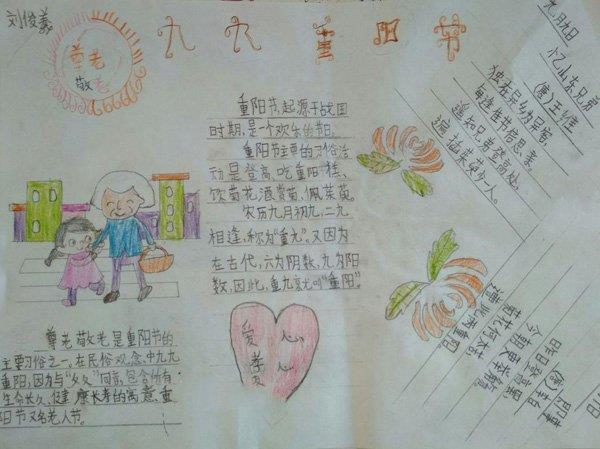 刘俊義
尊老
敬老
九九重阳节
九月九日
忆山东兄弟
(唐)王维
独在异乡为异客,
每逢佳节倍思亲。
遥知兄弟登高处,
遍插茱萸少一人。
重阳节,起源于战国
时期,是一个欢乐的节日。
重阳节主要的习俗活
动是登高、吃重阳糕、
饮菊花酒、赏菊、佩茱萸。
农历九月初九,二九
相逢,称为“重九”,又因为
在古代,六为阴数,九为阳
数,因此,重九就叫“重阳”。
尊老敬老是重阳节的
主要习俗之一,在民俗观念中九九
重阳,因为与“久久”同音,包含有
生命长久、健康长寿的寓意,重
阳节又名老人节。
爱心
孝心
(唐)李白
昨日登高罢
今朝更举觞
菊花何太苦
遭此两重阳